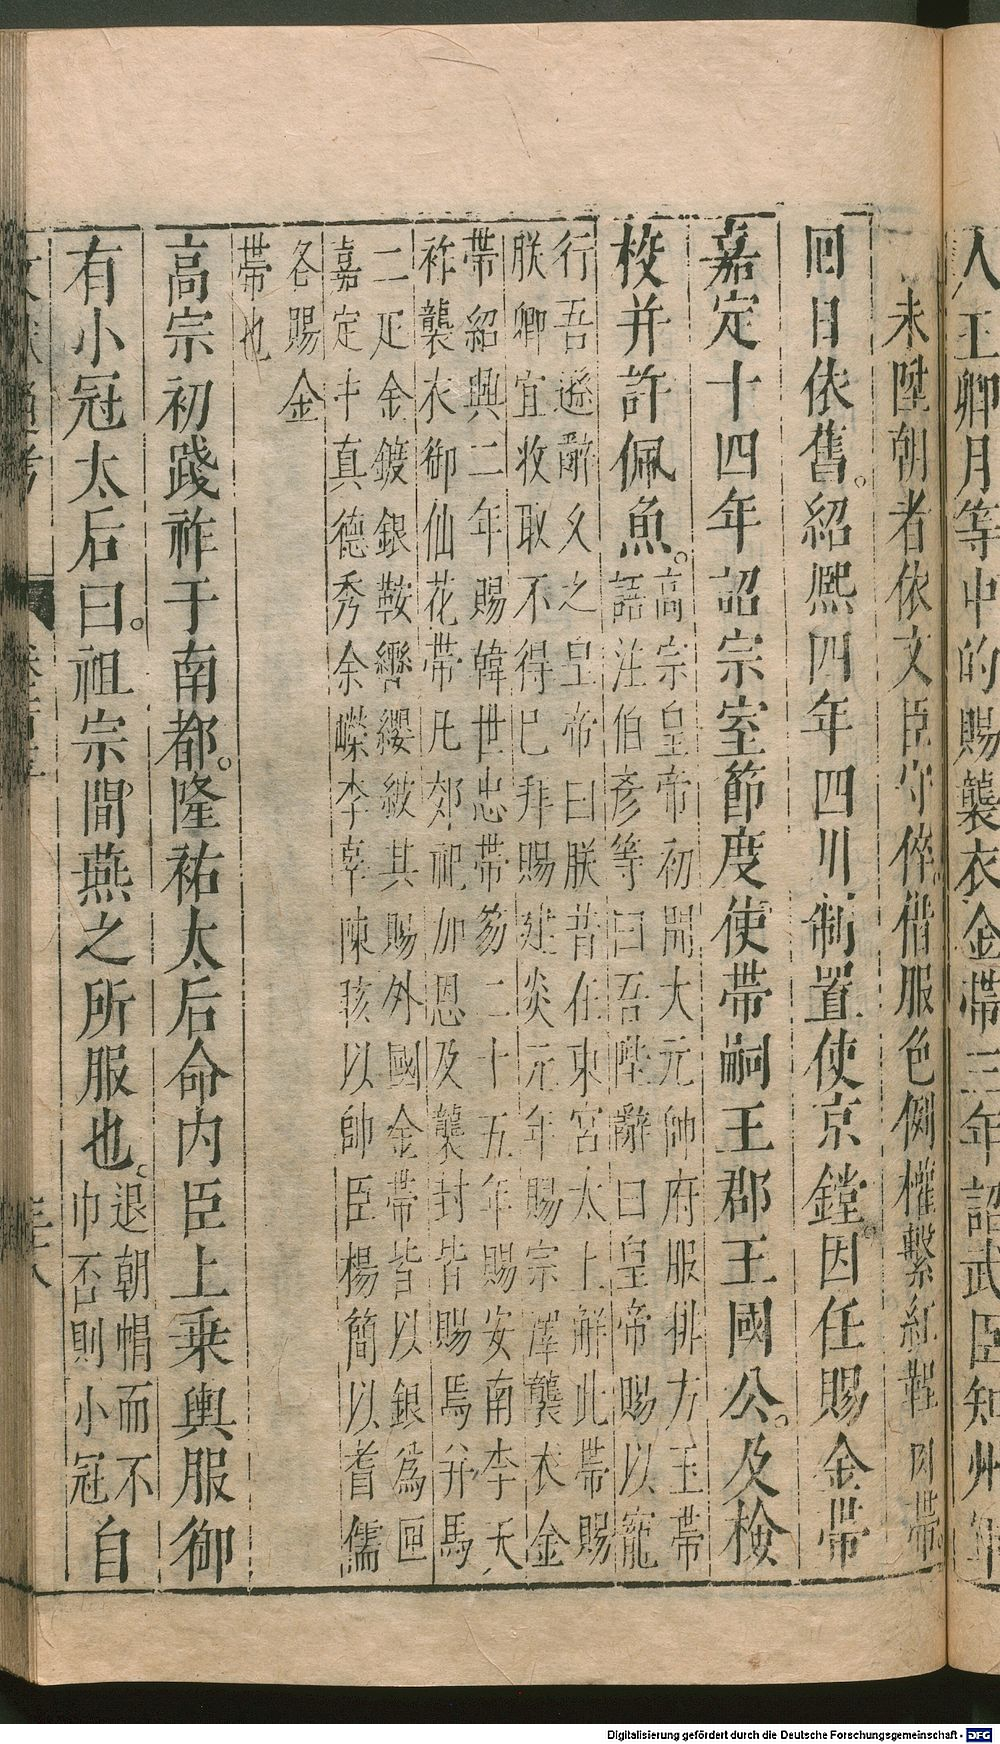 人王卿月等中的賜襲衣金帶三年詔武臣知州軍
未陞朝者依文臣守倅借服色例權繫紅鞓角帶。
回日依舊。紹熙四年四川制置使京鏜。因任賜金帶
嘉定十四年詔宗室節度使帶嗣王郡王國公。及檢
校并許佩魚。
高宗皇帝初開大元帥府服排方玉帶
語注伯彥等曰吾陛辭曰皇帝賜以寵
行吾遜辭久之皇帝曰朕昔在東宮太上解此帶賜
朕卿宜收取不得已拜賜建炎元年賜宗澤襲衣金
帶紹興二年賜韓世忠帶笏二十五年賜安南李天
祚襲衣御仙花帶凡郊祀加恩及襲封皆賜焉并馬
二疋金鍍銀鞍轡纓紱其賜外國金帶皆以銀爲匣
嘉定中真德秀余嶸李陳孩以帥臣楊簡以耆儒
各賜金
帶也
高宗初踐祚于南都。隆祐太后命内臣上乘輿服御
有小冠太后曰。祖宗間燕之所服也。
退朝帽而不
巾否則小冠
自
Digitalisierung gefördert durch die Deutsche Forschungsgemeinschaft - DFG